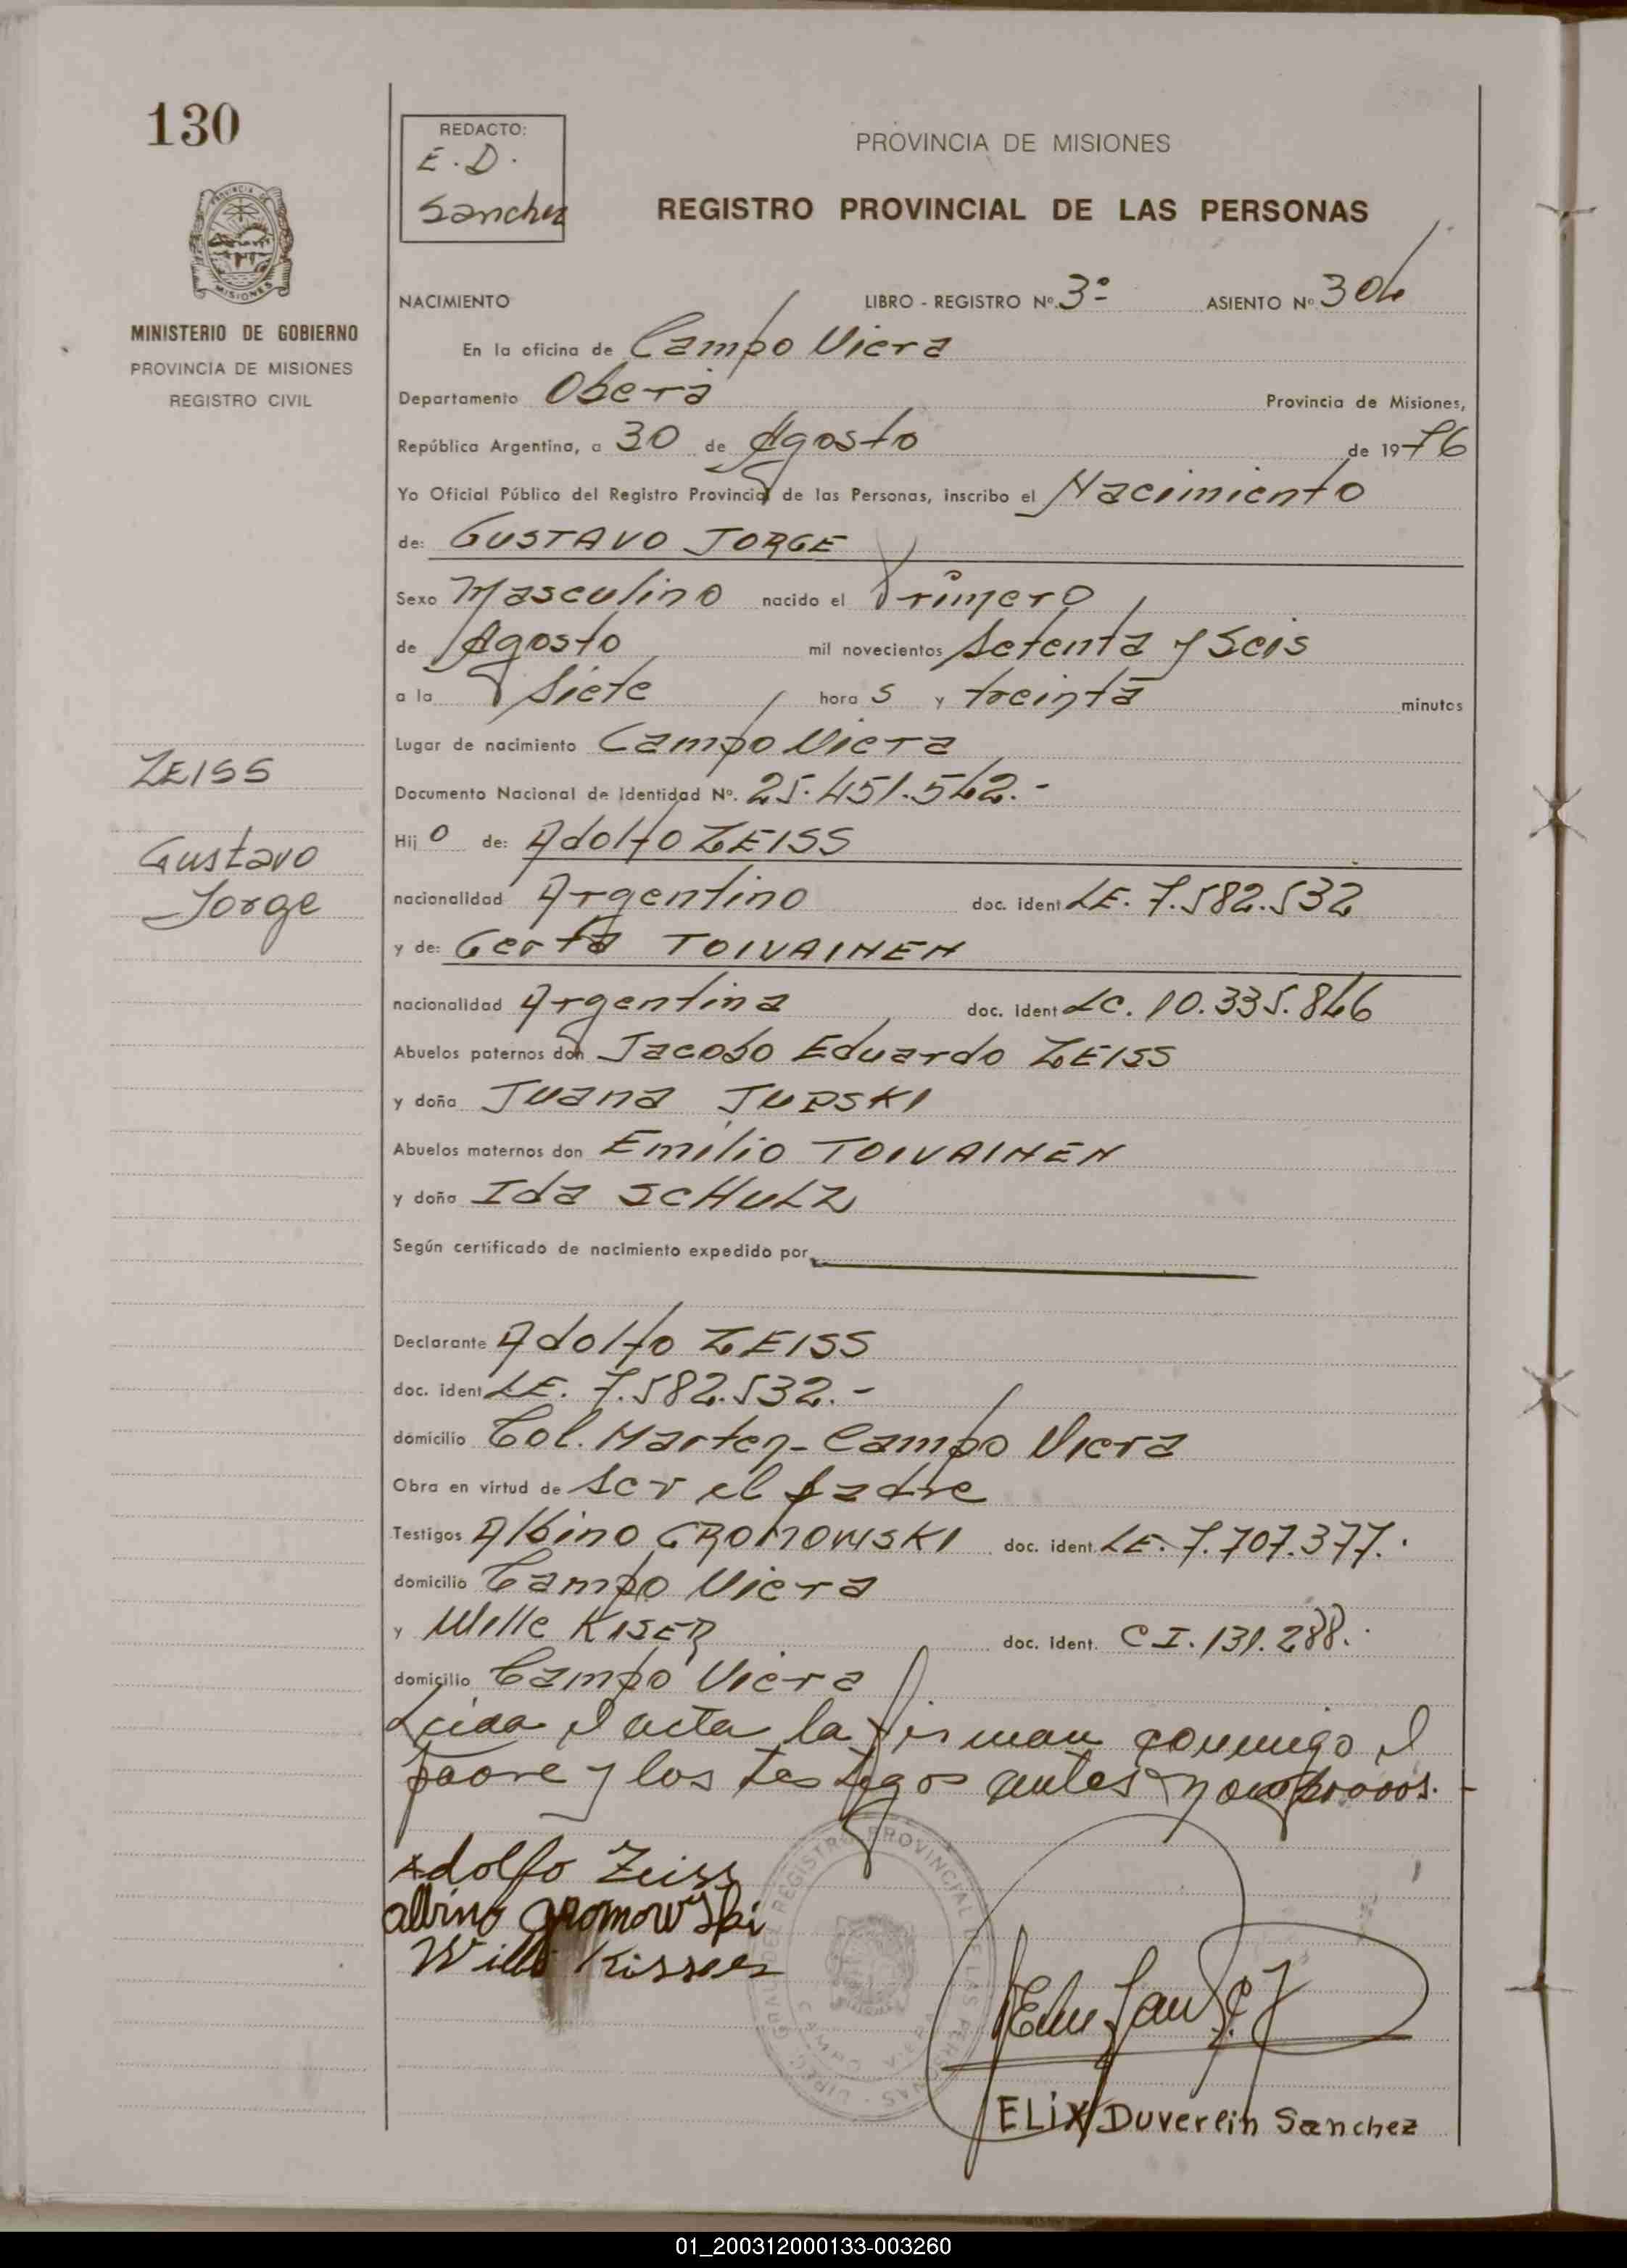 130
REDACTO:
E. D.
Sanchez
PROVINCIA DE MISIONES
REGISTRO PROVINCIAL DE LAS PERSONAS
MISIONES
MINISTERIO DE GOBIERNO
PROVINCIA DE MISIONES
REGISTRO CIVIL
NACIMIENTO LIBRO - REGISTRO Nº. 3º- ASIENTO Nº 304
En la oficina de Campo Viera
Departamento Oberá Provincia de Misiones,
República Argentina, a 30 de Agosto de 1976
Yo Oficial Público del Registro Provincial de las Personas, inscribo el Nacimiento
de: GUSTAVO JORGE
Sexo Masculino nacido el Primero
de Agosto mil novecientos setenta y seis
a la siete hora s y treinta minutos
Lugar de nacimiento Campo Viera
ZEISS
Gustavo
Jorge
Documento Nacional de Identidad Nº. 25.451.542.-
Hij o de: Adolfo ZEISS
nacionalidad Argentino doc. ident LE. 7.582.532
y de: Gerta TOIVAINEN
nacionalidad Argentina doc. ident LC. 10.335.846
Abuelos paternos don Jacobo Eduardo ZEISS
y doña Juana JUDSKI
Abuelos maternos don Emilio TOIVAINEN
y doña Ida SCHULZ
Según certificado de nacimiento expedido por
Declarante Adolfo ZEISS
doc. ident LE. 7.582.532.-
domicilio Col. Marten - Campo Viera
Obra en virtud de ser el padre
Testigos Albino GROMOWSKI doc. ident. LE. 7.707.377.
domicilio Campo Viera
y Wille KISER doc. ident. C I. 131.288.
domicilio Campo Viera
Leída el acta la firman conmigo el
padre y los testigos antes nombrados.-
Adolfo Zeiss
albino gromowski
Willi Kisser
REGISTRO PROVINCIAL DE LAS PERSONAS
CAMPO VIERA
ELIX DUVERLIN Sanchez
01_200312000133-003260